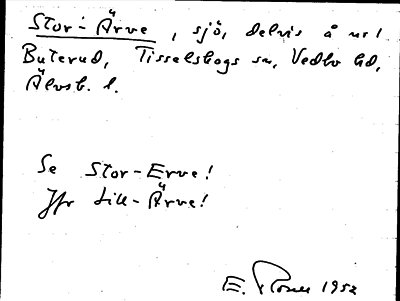 Stor-Ärve, sjö, delvis å nr 1
Buterud, Tisselskogs sn, Vedbo hd,
Älvsb. l.
Se Stor-Erve!
Jfr Lill-Ärve!
E. 1952